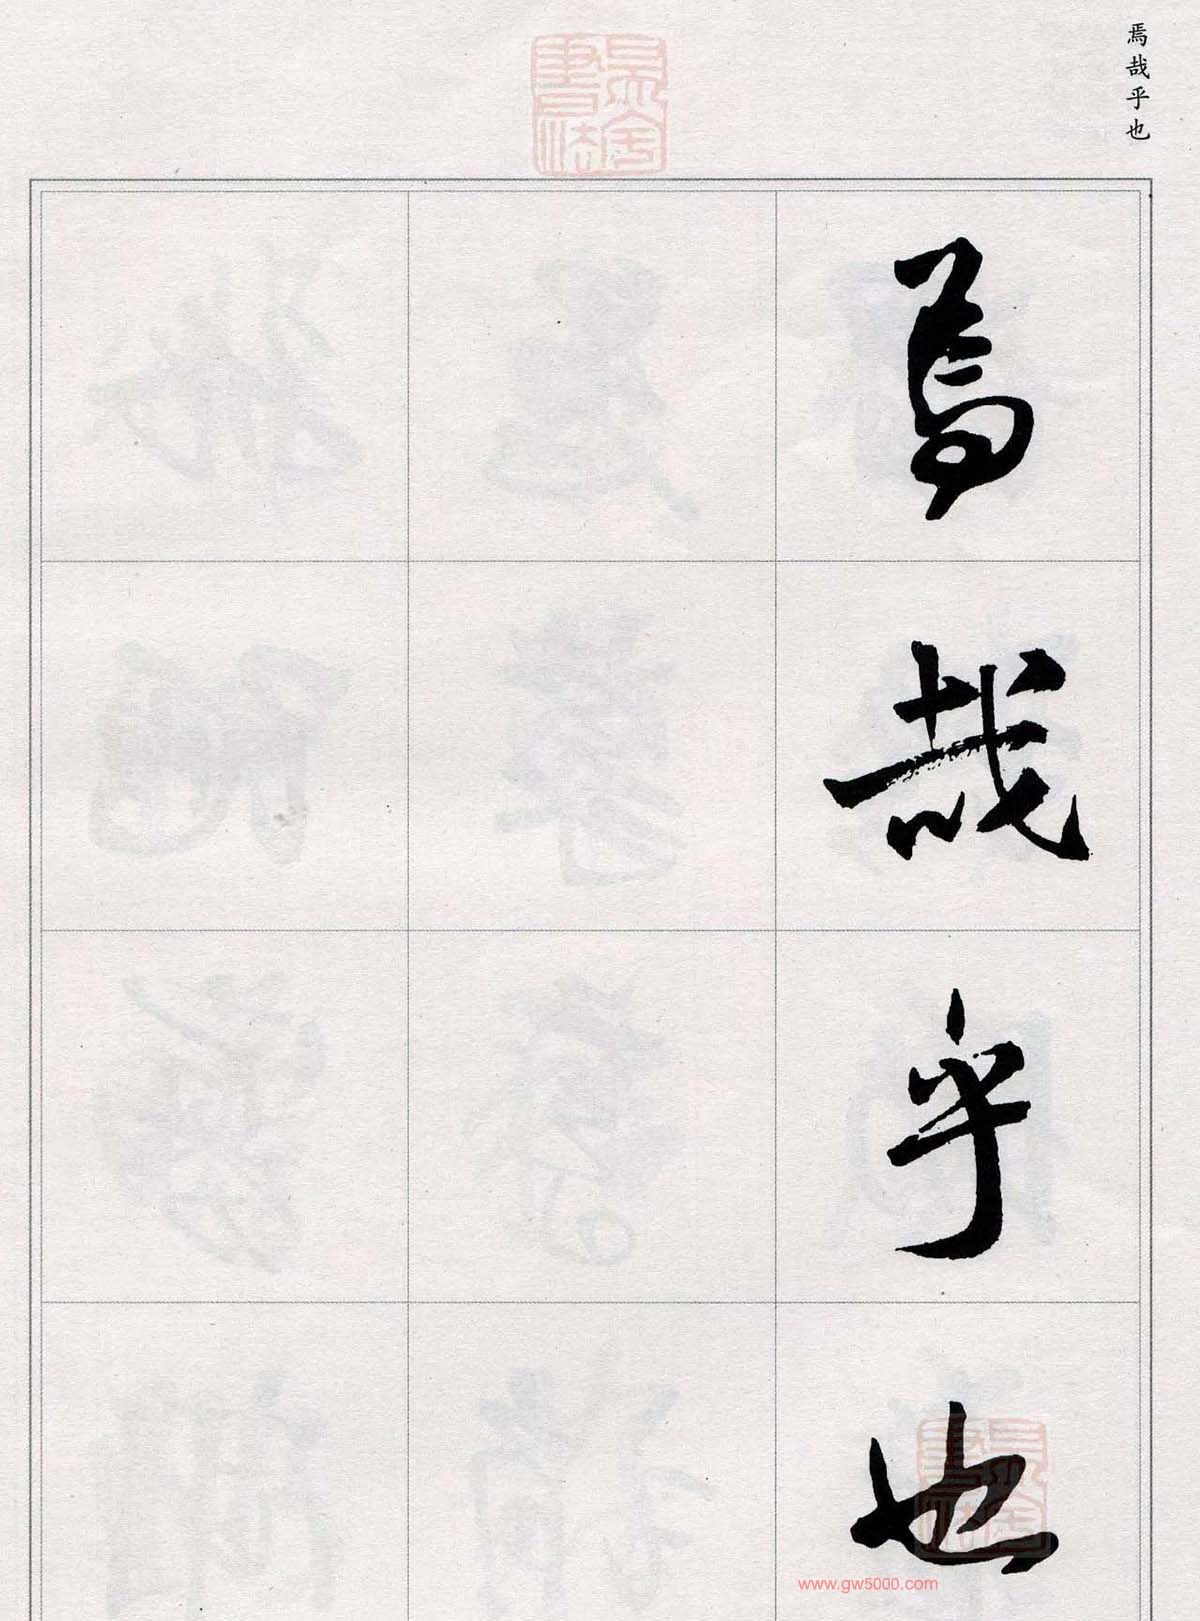 焉哉乎也
焉
哉
乎
也
www.gw5000.com